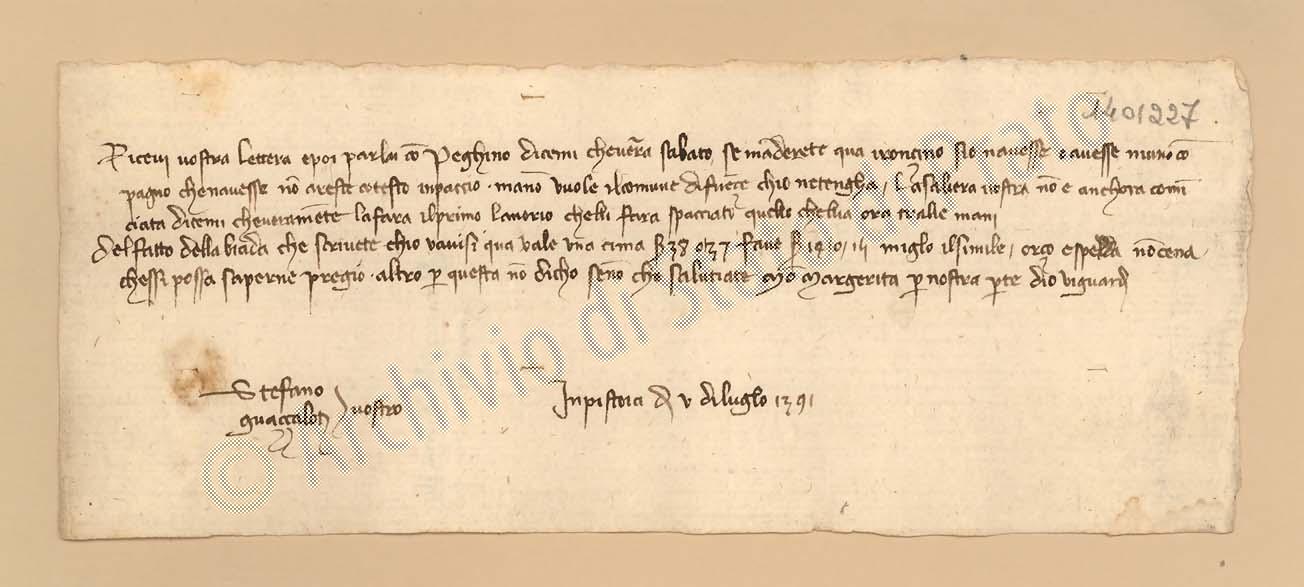 1401227
Ricevi vostra lettera e poi parlai cō Peghino dicemi che verà sabato se māderete qua i roncino s'io n'avesse o avesse niuno cō
pagno che n'avesse nō areste cotesto inpaccio ma nō vuole il comune di firēçe ch'io ne tengha L casaliera vostra nō e anchora comī
ciata dicemi che veramēte la fara il primo lavorio chelli fara spacciato quello chellia ora tralle mani
del fatto della biada che scrivete ch'io v'avisi qua vale una cima ß 38 o 37 fave ß miglo il simile orço e spelda nō ce n'a
chessi possa saperne pregio altro p questa nō dicho senō che salutiate Mō Margerita p nostra pte dio vi guardi
Stefano
Guaççalotī vostro
In pistoia dì v di luglo 1391
© Archivio di Stato di Prato